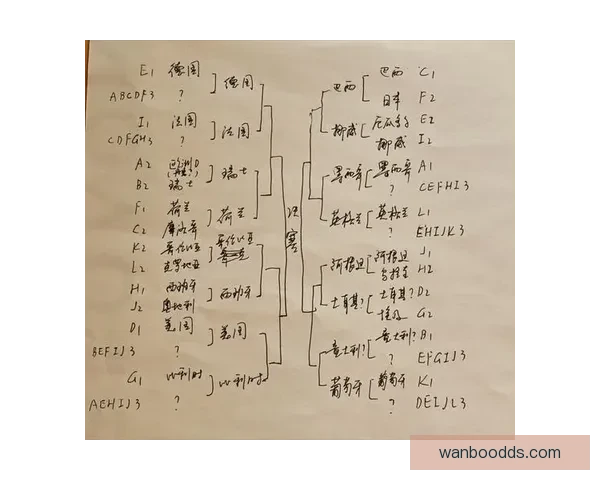 E1 德国
ABCDF3 ?
德国
I1 法国
CDFGH3 ?
法国
A2 欧洲D
B2 瑞士
瑞士
F1 荷兰
C2 摩洛哥
荷兰
K2 哥伦比亚
L2 克罗地亚
哥伦比亚
H1 西班牙
J2 奥地利
西班牙
D1 美国
BEFIJ3 ?
美国
G1 比利时
AEHIJ3 ?
比利时
决赛
巴西
巴西 C1
日本 F2
挪威
厄瓜多尔 E2
挪威 I2
墨西哥
墨西哥 A1
? CEFHI3
英格兰
英格兰 L1
? EHIJK3
阿根廷
阿根廷 J1
乌拉圭 H2
土耳其?
土耳其? D2
埃及 G2
意大利?
意大利? B1
? EFGIJ3
葡萄牙
葡萄牙 K1
? DEIJL3
wanboodds.com